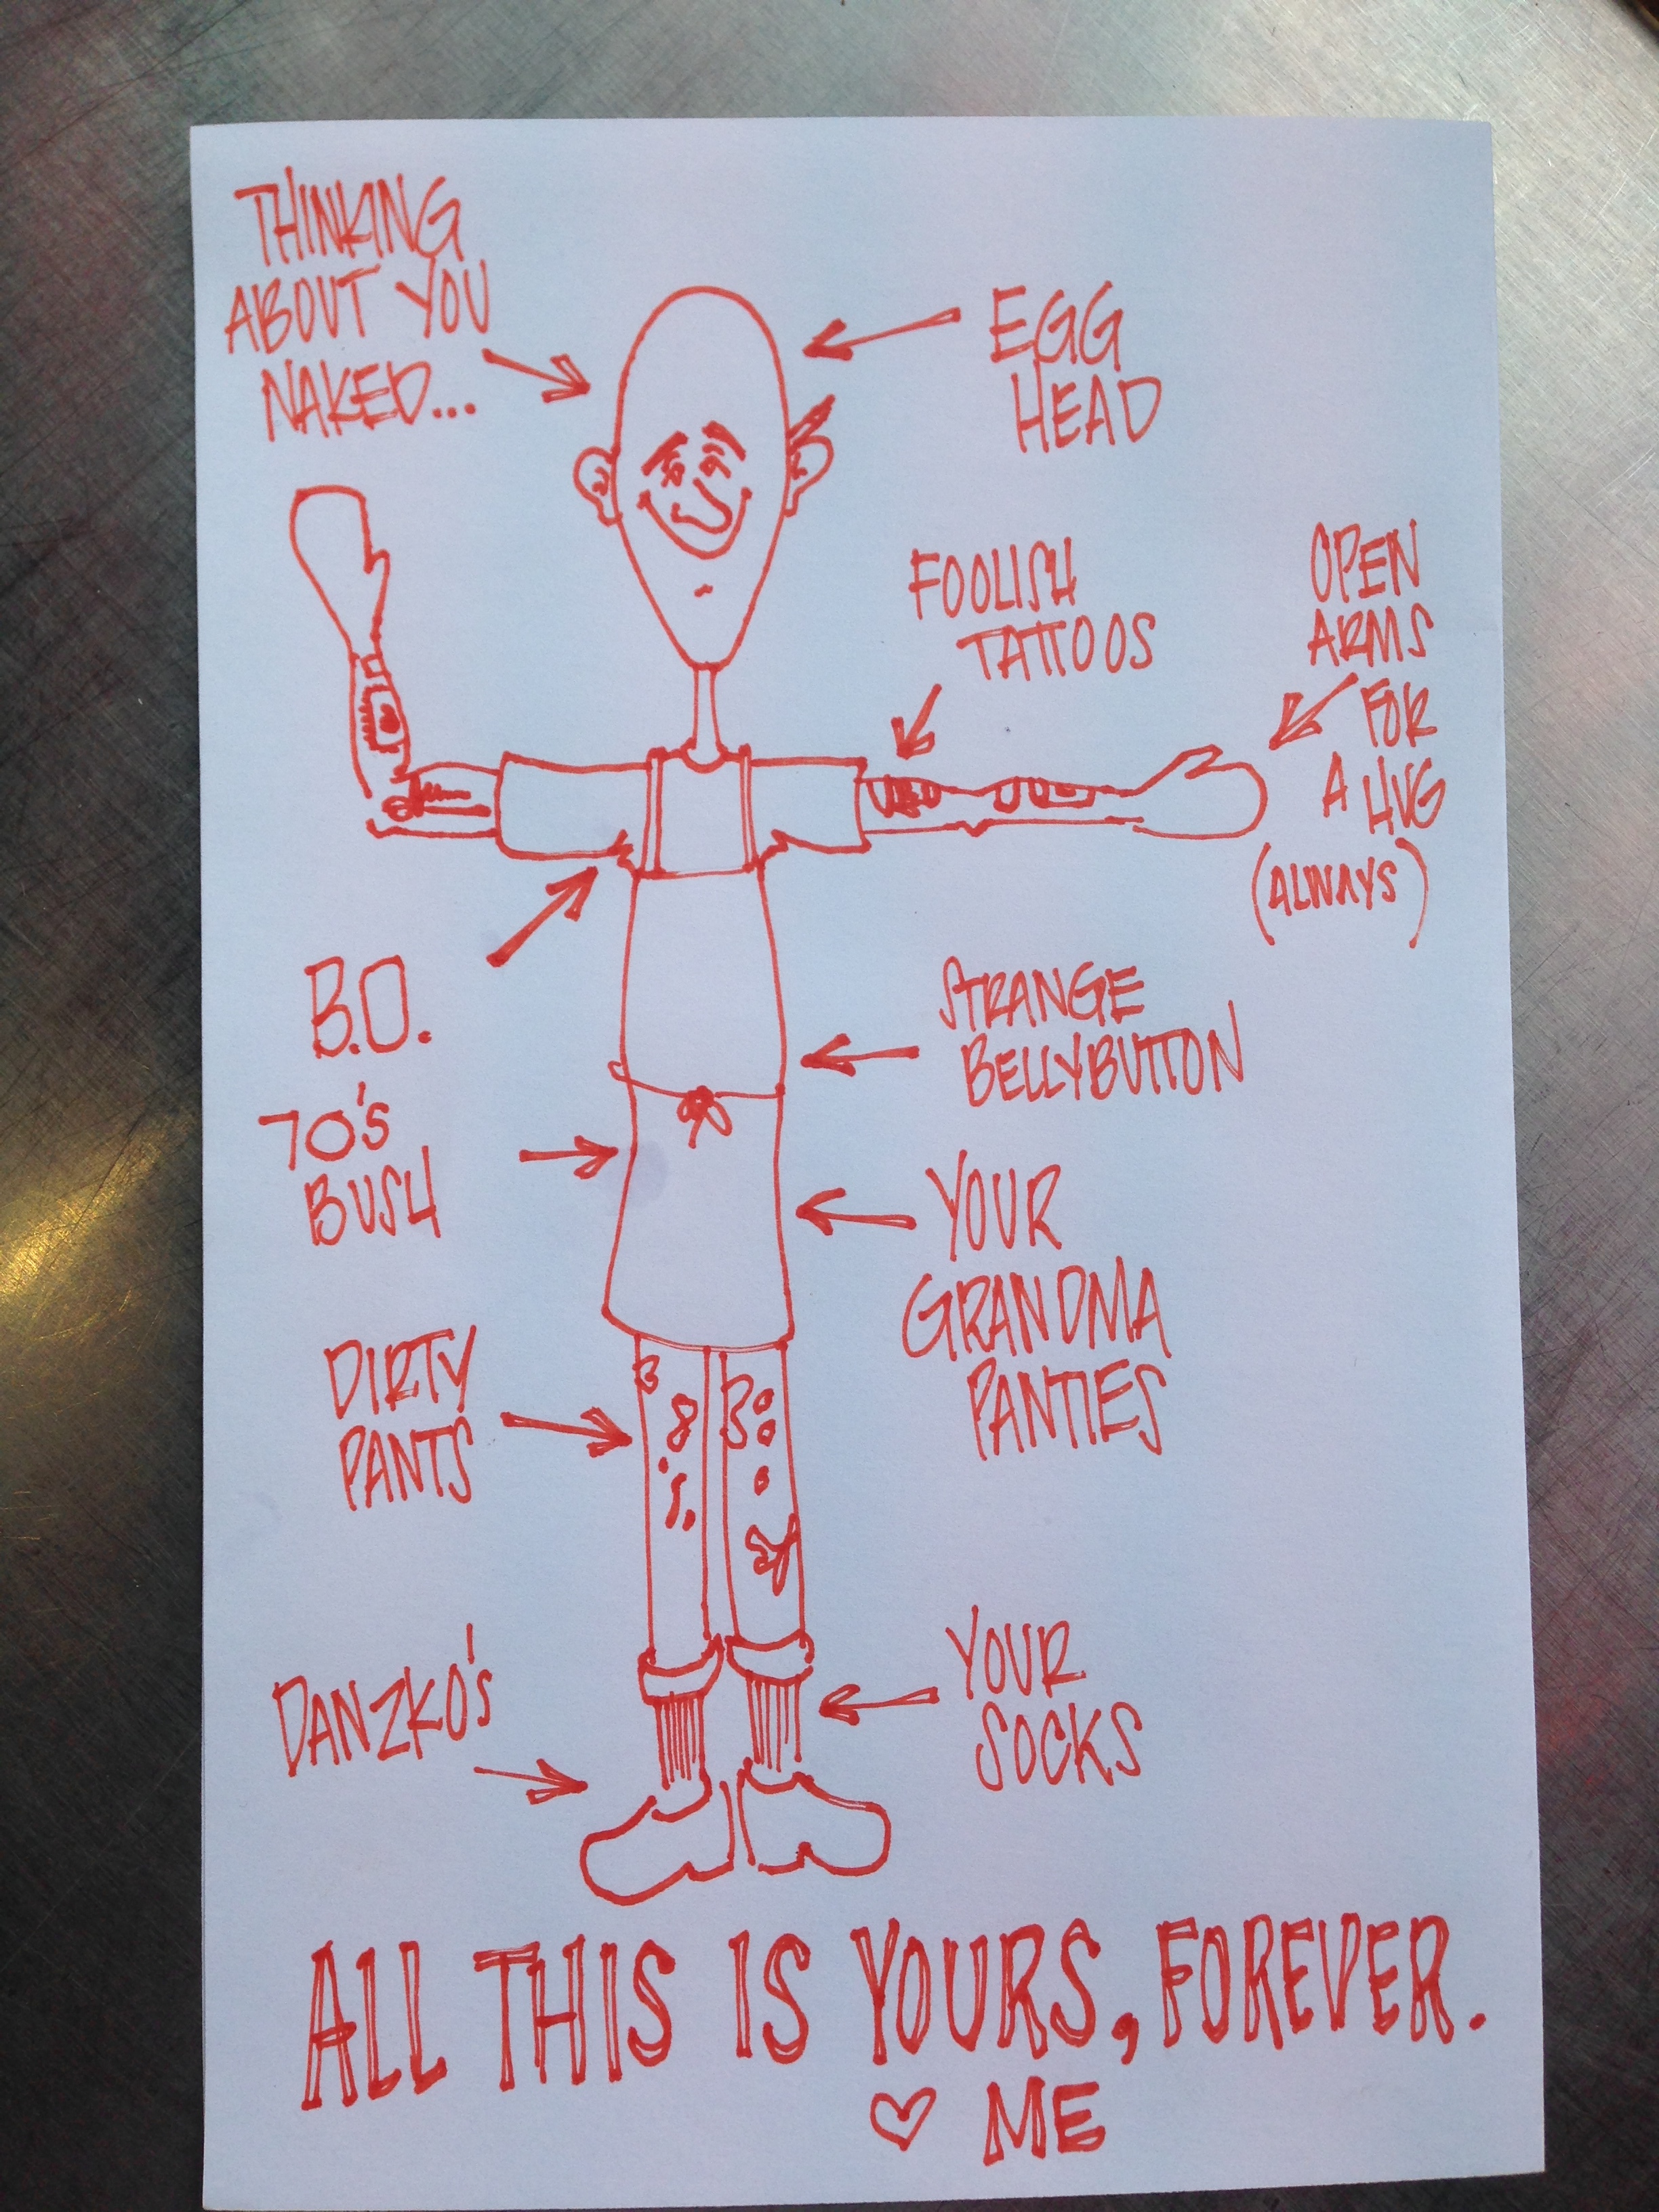 THINKING
ABOUT YOU
NAKED...
EGG
HEAD
FOOLISH
TATTOOS
OPEN
ARMS
FOR
A HUG
(ALWAYS)
B.O.
STRANGE
BELLYBUTTON
70's
BUSH
YOUR
GRANDMA
PANTIES
DIRTY
PANTS
DANZKO'S
YOUR
SOCKS
ALL THIS IS YOURS, FOREVER.
♡ ME